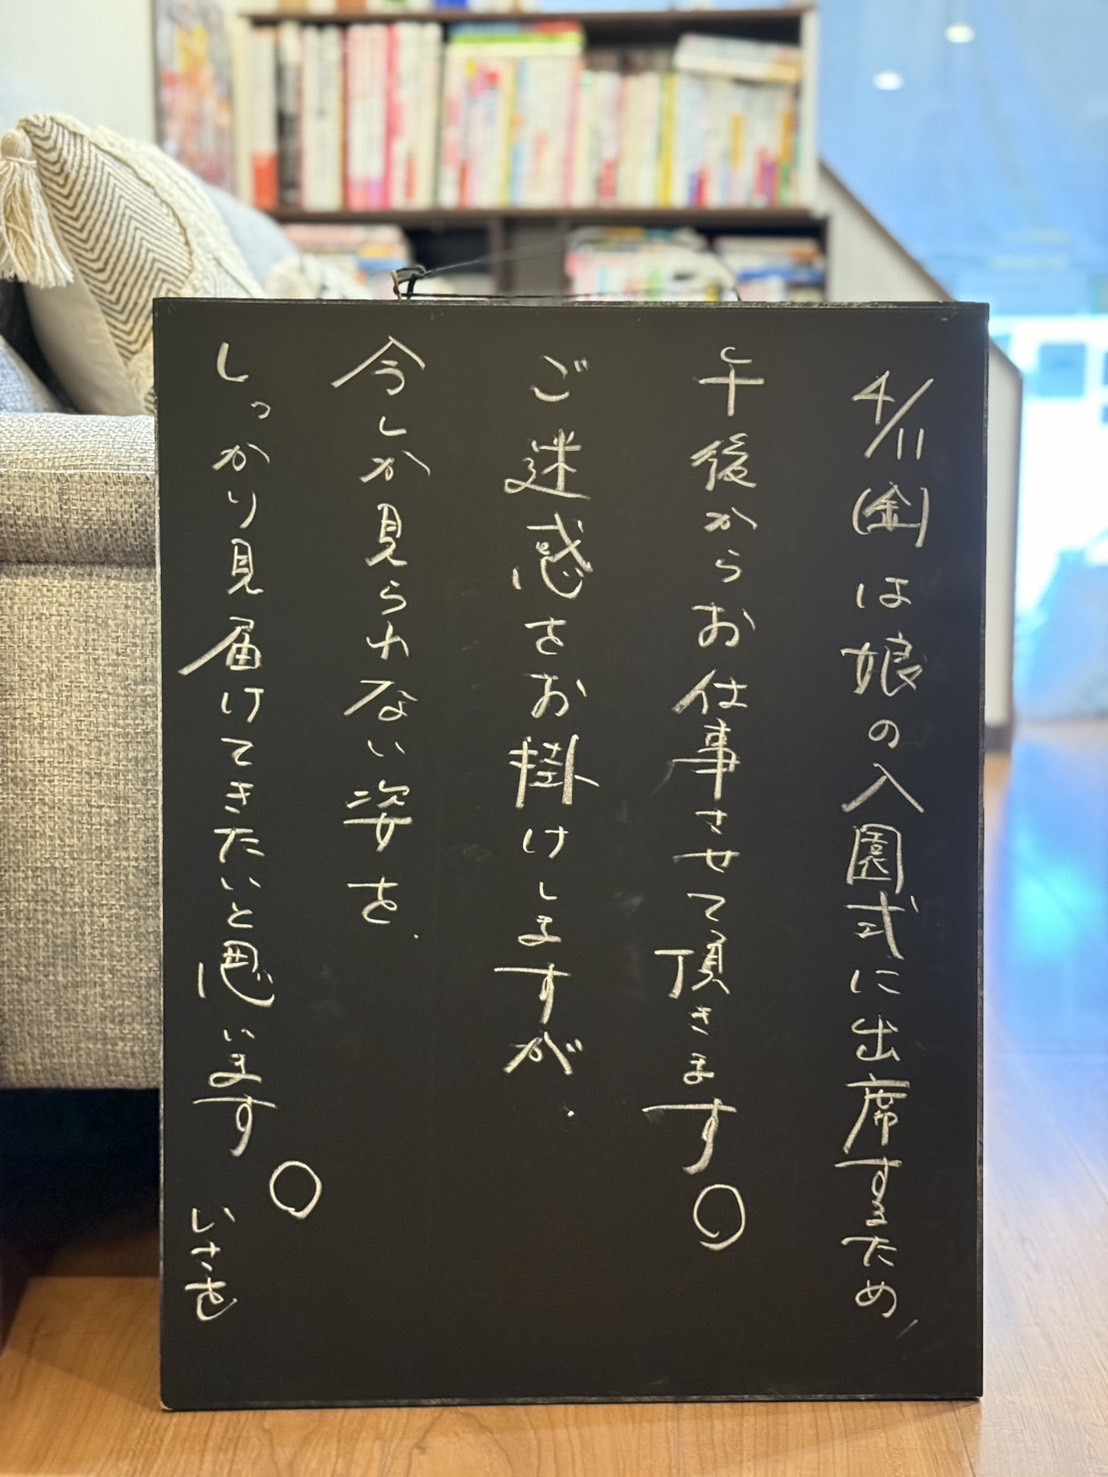 4/11(金)は娘の入園式に出席するため、
午後からお仕事させて頂きます。
ご迷惑をお掛けしますが、
今しか見られない姿を、
しっかり見届けてきたいと思います。
いさを